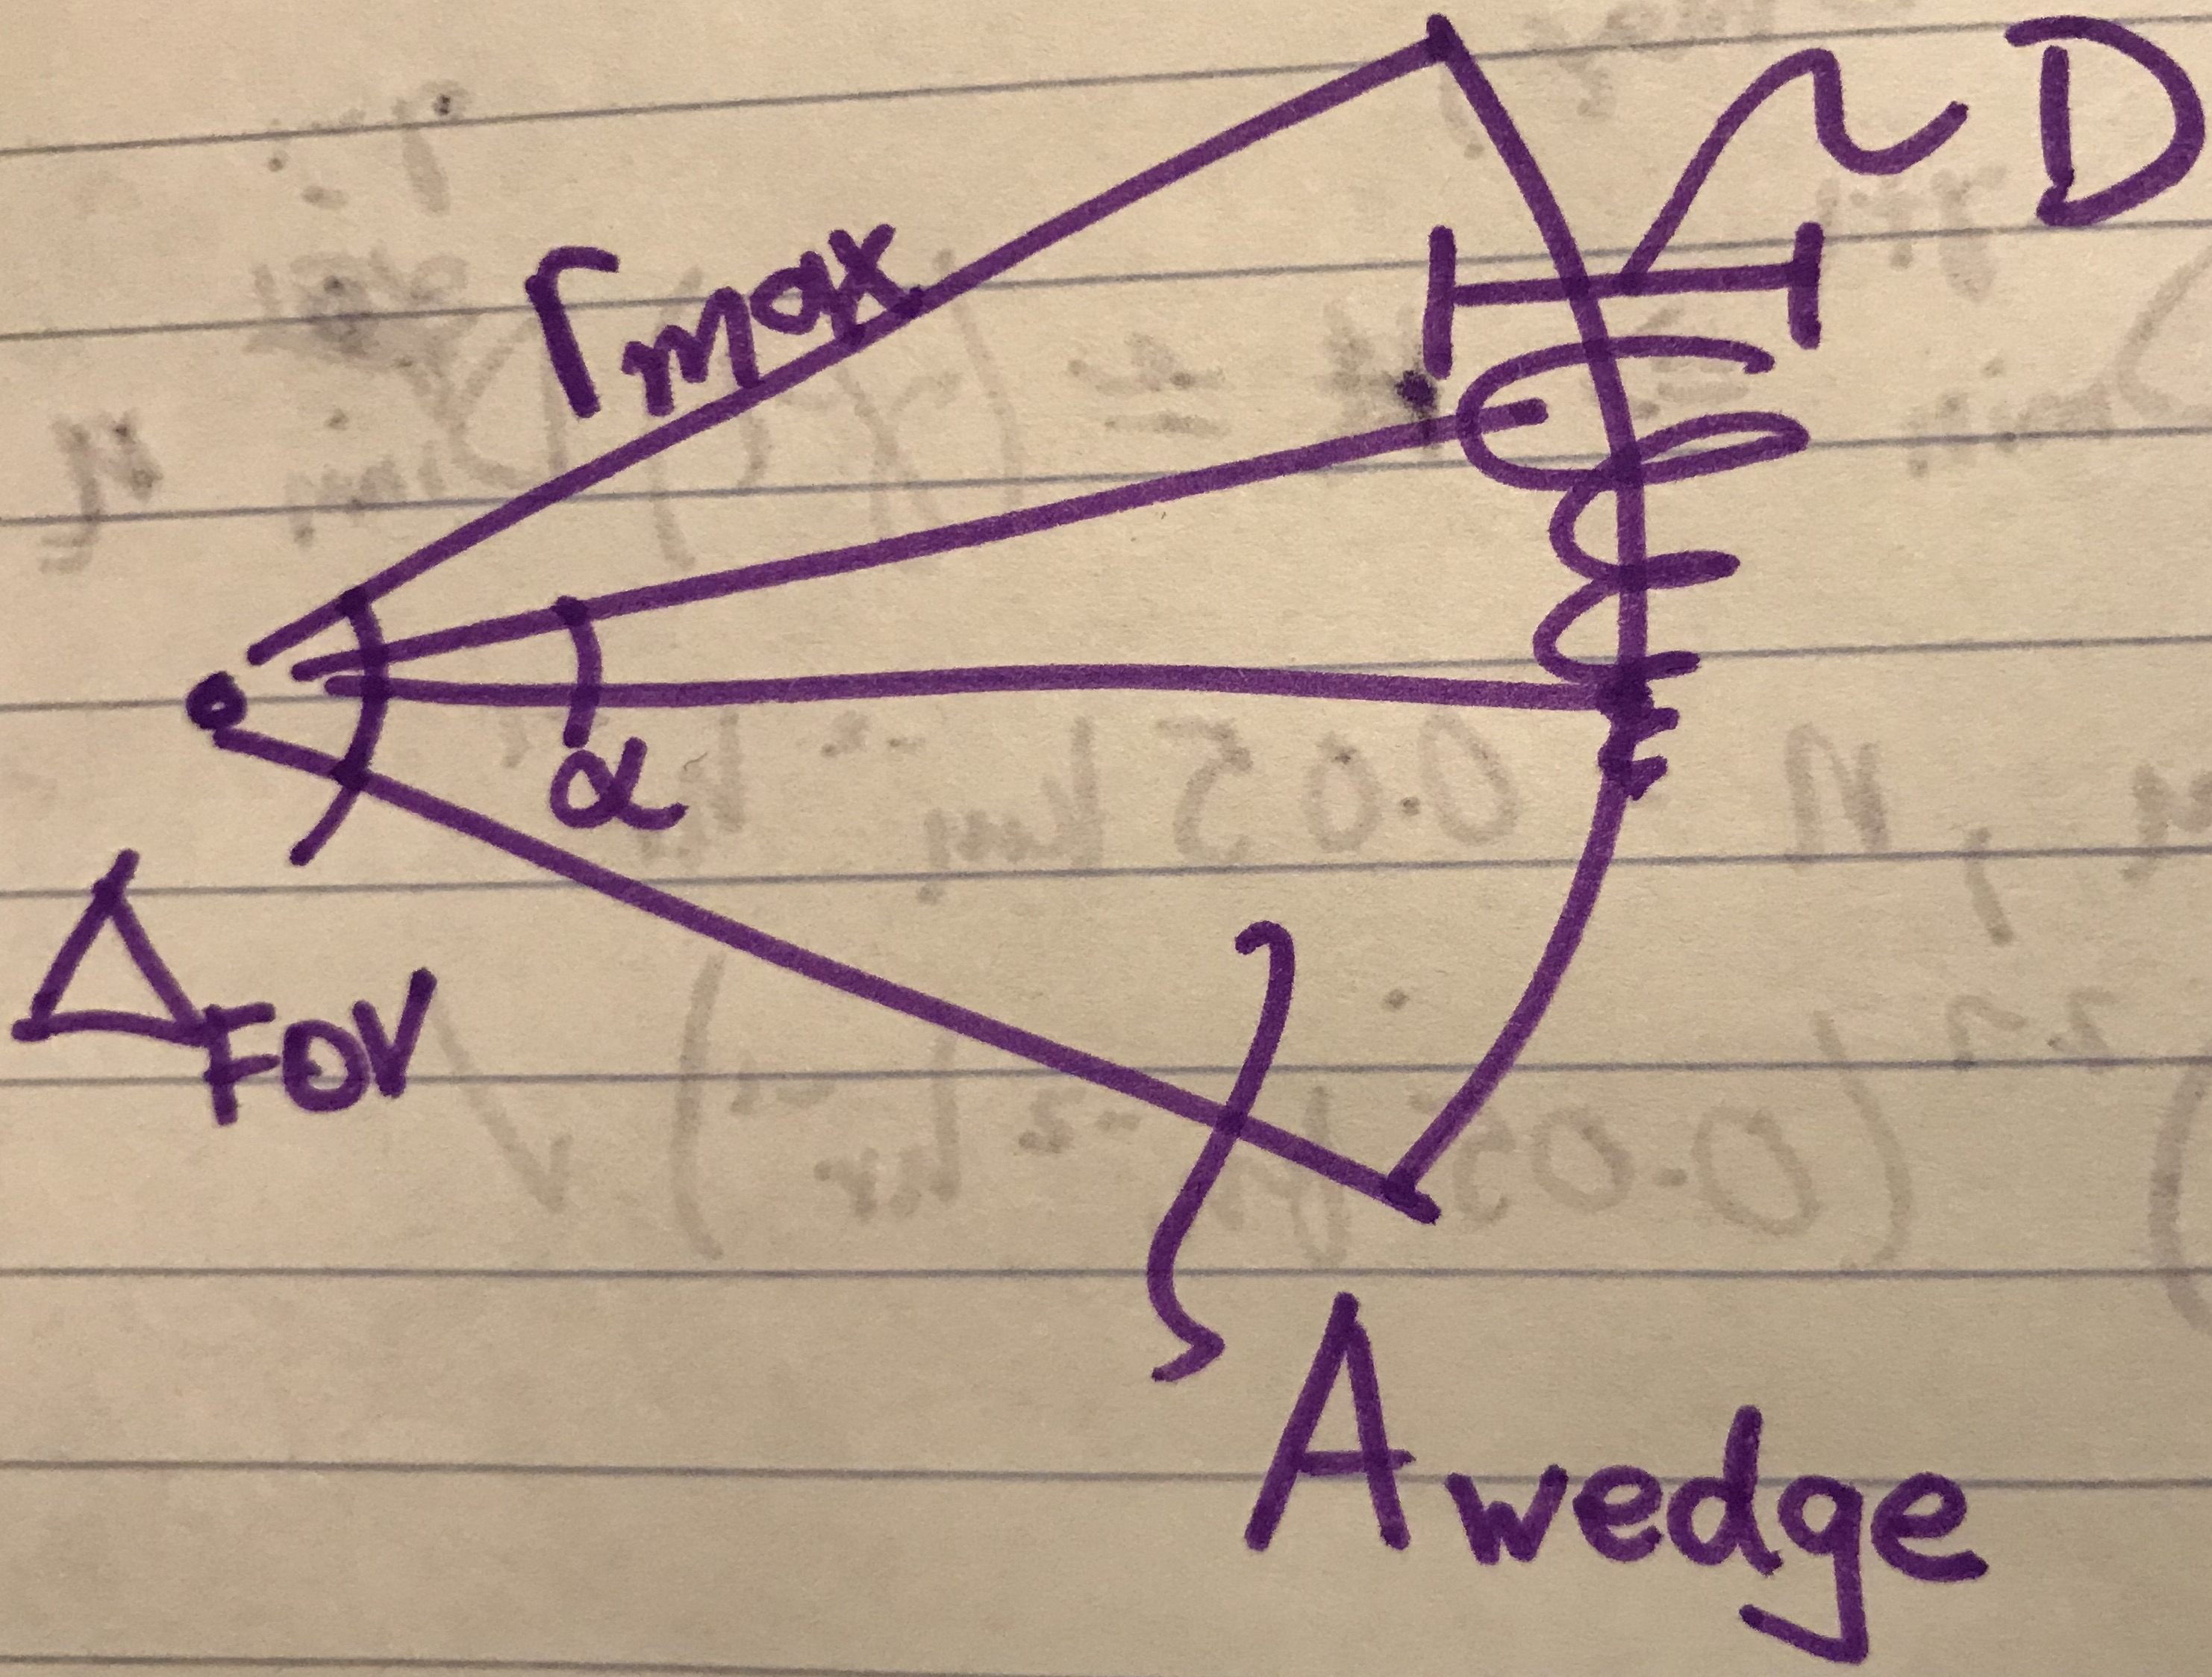 D
rmax
α
ΔFOV
Awedge